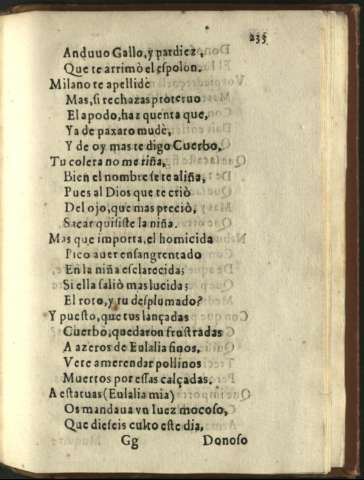 235
Anduuo Gallo, y pardiez,
Que te arrimò el espolon.
Milano te apellidè
Mas, si rechazas proteruo
El apodo, haz quenta que,
Ya de paxaro mudè,
Y de oy mas te digo Cuerbo.
Tu colera no me riña,
Bien el nombre se te aliña,
Pues al Dios que te criò
Del ojo, que mas preciò,
Sacar quisiste la niña.
Mas que importa, el homicida
Pico auer ensangrentado
En la niña esclarecida;
Si ella saliò mas lucida;
El roto, y tu desplumado?
Y puesto, que tus lançadas
Cuerbo, quedaron frustradas
A azeros de Eulalia finos,
Vete a merendar pollinos
Muertos por essas calçadas.
A estatuas (Eulalia mia)
Os mandaua vn Iuez mocoso,
Que dieseis culto este dia,
Gg Donoso